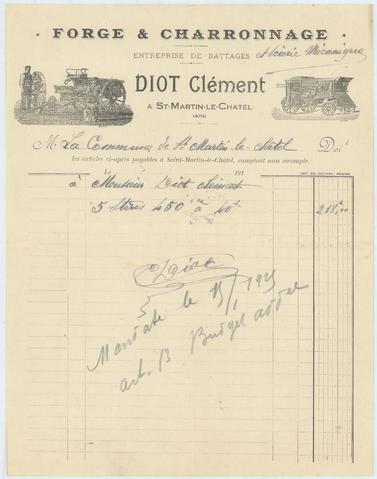 FORGE & CHARRONNAGE
ENTREPRISE DE BATTAGES et Scierie Mécanique
DIOT Clément
A ST-MARTIN-LE-CHATEL
(AIN)
M La Commune de St Martin-le-chatel Doit
les articles ci-après payables à Saint-Martin-le-Châtel, comptant sans escompte.
Le 191
à Monsieur Diot Clément
5 stères 450 à 40F 218F,00
C Diot
Mandaté le 15/1 1925
art. 13 Budget addel